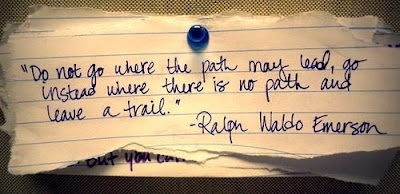 "Do not go where the path may lead, go
instead where there is no path and
leave a trail."
-Ralph Waldo Emerson
but you can